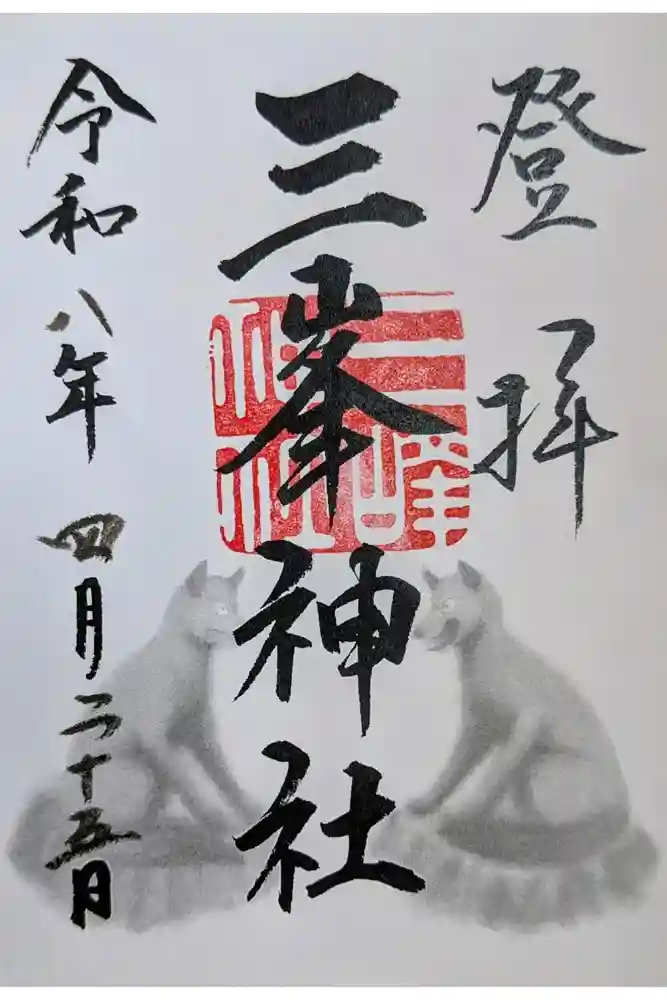 登拝
三峯神社
令和八年四月二十五日